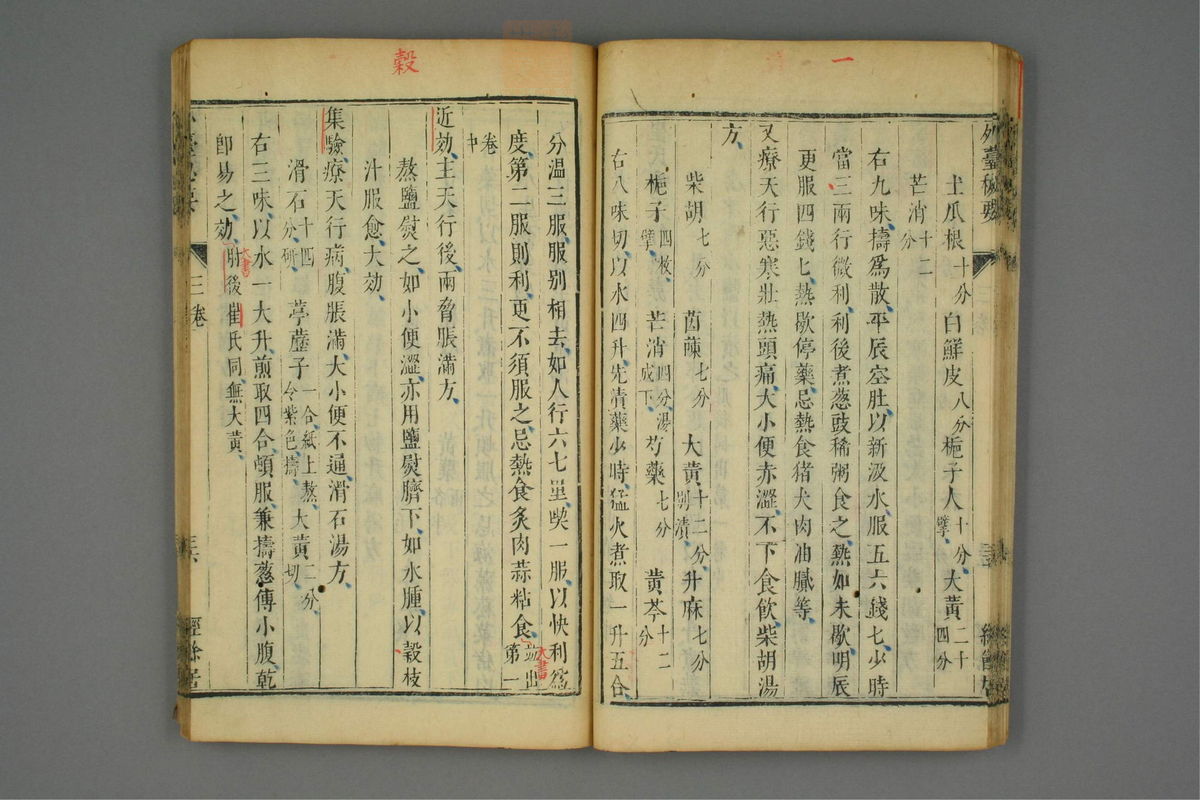 一
外臺秘要
土瓜根十分白鮮皮八分梔子人十分擘大黃二十四分
芒消十二分
右九味擣爲散平辰空肚以新汲水服五六錢匕少時
當三兩行微利利後煮葱豉稀粥食之熱如未歇明辰
更服四錢匕熱歇停藥忌熱食猪犬肉油膩等
又療天行惡寒壯熱頭痛大小便赤澀不下食飲柴胡湯
方
柴胡七分茵蔯七分大黃十二分別漬升麻七分
梔子四枚擘芒消四分湯成下芍藥七分黃芩十二分
右八味切以水四升先漬藥少時猛火煮取一升五合
穀
分温三服服别相去如人行六七里喫一服以快利爲
度第二服則利更不須服之忌熱食炙肉蒜粘食並出第一
卷中
大書
近効主天行後兩脅脹滿方
熬鹽熨之如小便澀亦用鹽熨臍下如水腫以穀枝
汁服愈大効
集驗療天行病腹脹滿大小便不通滑石湯方
滑石十四分研葶藶子一合紙上熬令紫色擣大黃二分切
右三味以水一大升煎取四合頓服兼擣葱傅小腹乾
卽易之効肘後崔氏同無大黃
大書
三卷
經餘居